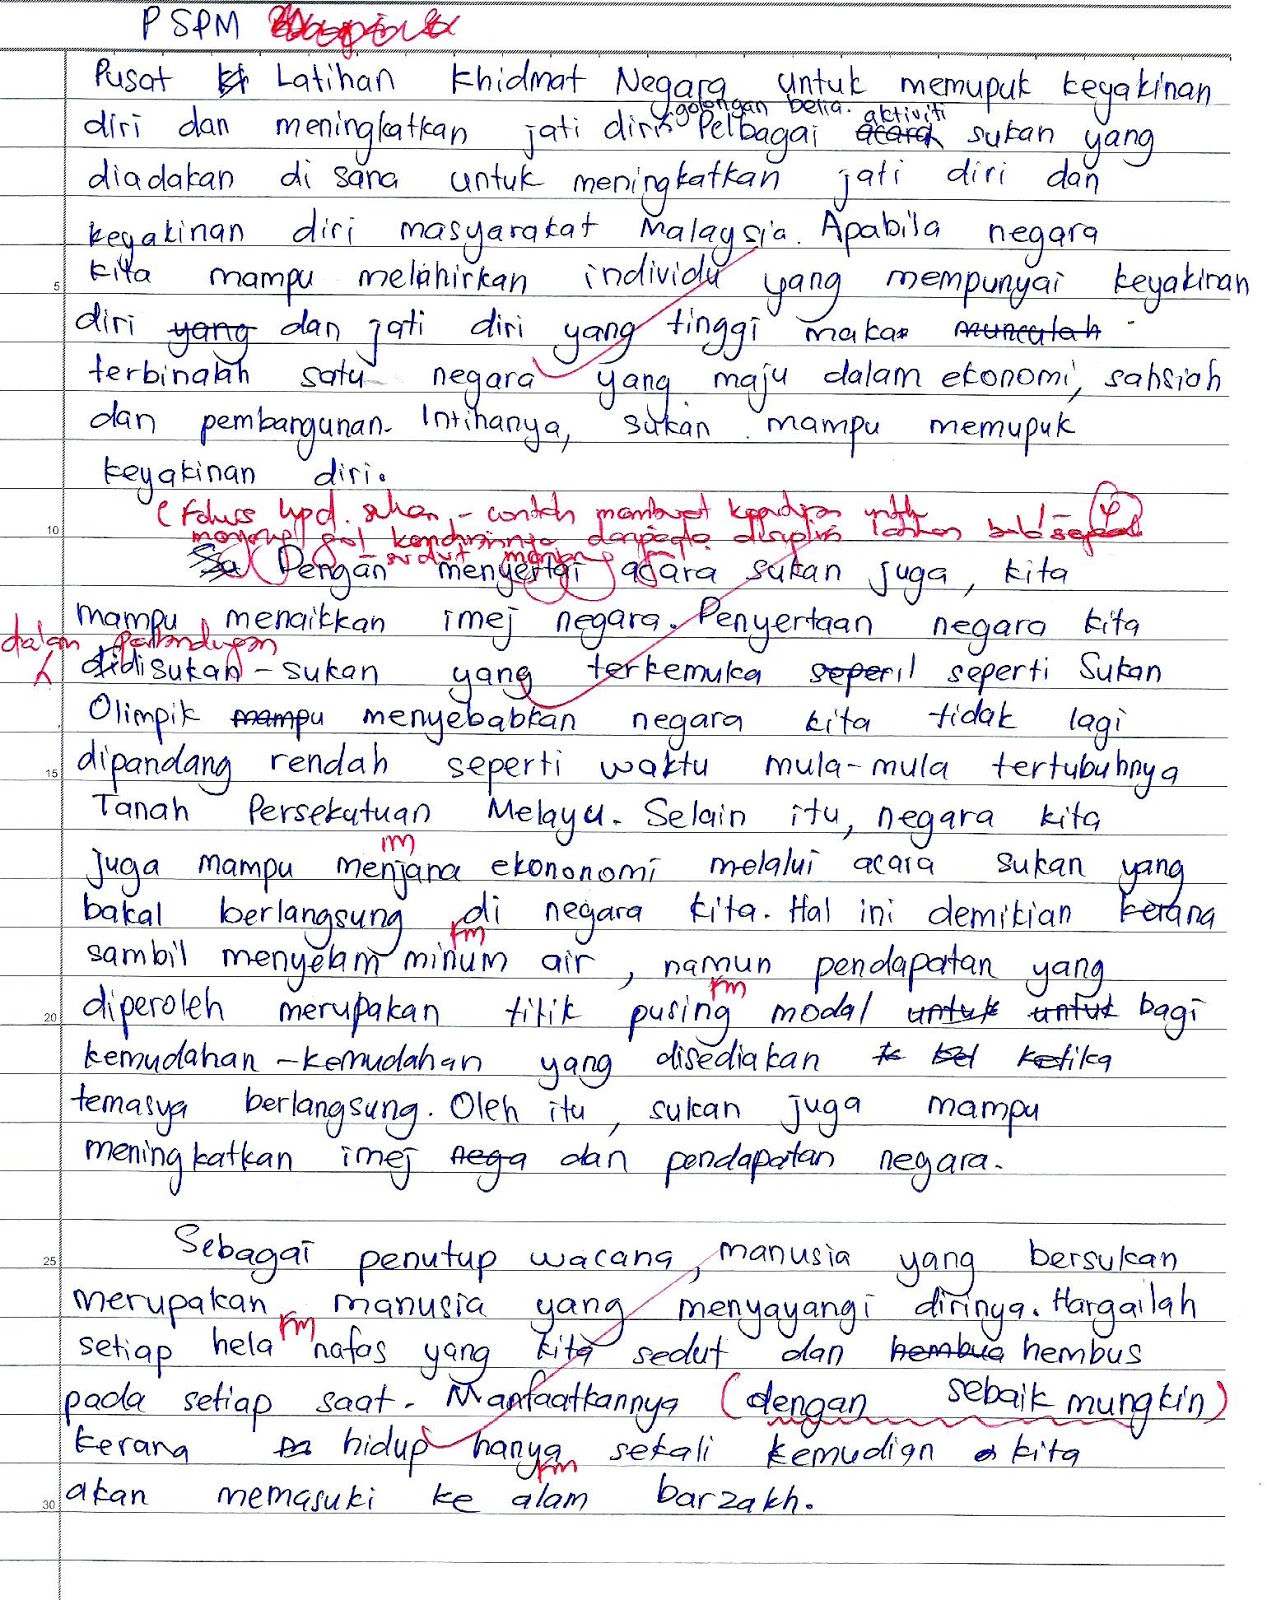 PSPM
Pusat Latihan Khidmat Negara untuk memupuk keyakinan
golongan belia. aktiviti
diri dan meningkatkan jati diri Pelbagai acara sukan yang
diadakan di sana untuk meningkatkan jati diri dan
keyakinan diri masyarakat Malaysia. Apabila negara
5 kita mampu melahirkan individu yang mempunyai keyakinan
diri yang dan jati diri yang tinggi maka munculah
terbinalah satu negara yang maju dalam ekonomi, sahsiah
dan pembangunan. Intihanya, sukan mampu memupuk
keyakinan diri.
(Fokus kpd. sukan, - contoh membuat
10 daripada disiplin latihan
Dengan menyertai acara sukan juga, kita
mampu menaikkan imej negara. Penyertaan negara kita
dalam pertandingan
didisukan-sukan yang terkemuka seperti seperti Sukan
Olimpik mampu menyebabkan negara kita tidak lagi
15 dipandang rendah seperti waktu mula-mula tertubuhnya
Tanah Persekutuan Melayu. Selain itu, negara kita
m
juga mampu menjana ekononomi melalui acara sukan yang
bakal berlangsung di negara kita. Hal ini demikian kerana
km
sambil menyelam minum air, namun pendapatan yang
km
20 diperoleh merupakan titik pusing modal untuk untuk bagi
kemudahan-kemudahan yang disediakan k kel ketika
temasya berlangsung. Oleh itu, sukan juga mampu
meningkatkan imej nega dan pendapatan negara.
25 Sebagai penutup wacana, manusia yang bersukan
merupakan manusia yang menyayangi dirinya. Hargailah
km
setiap hela nafas yang kita sedut dan hembua hembus
pada setiap saat. Manfaatkannya (dengan sebaik mungkin)
kerana hidup hanya sekali kemudian kita
km
30 akan memasuki ke alam barzakh.